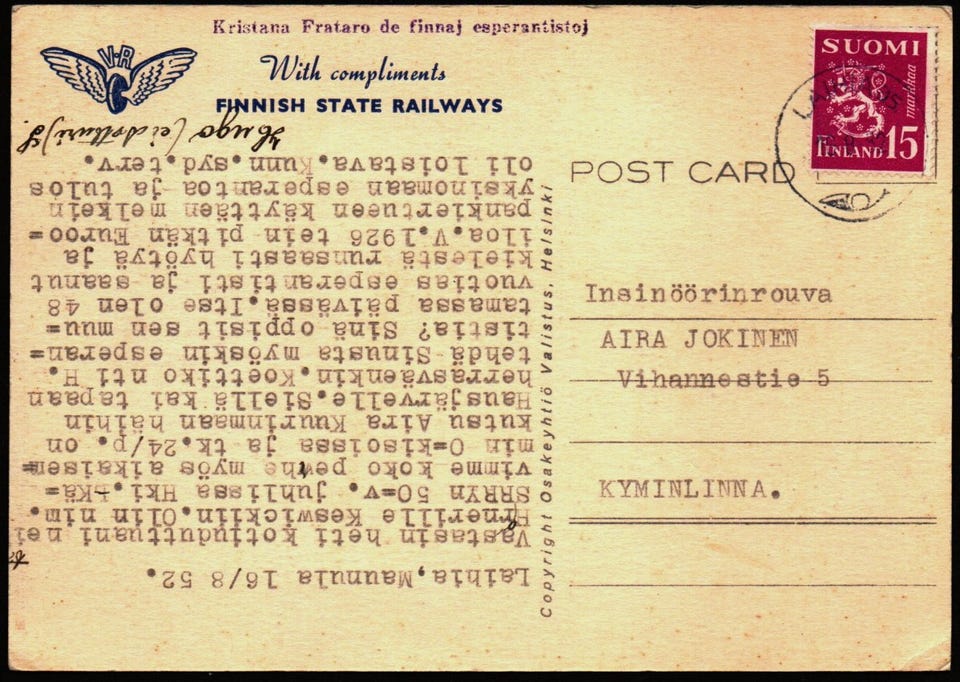 Kristana Frataro de finnaj esperantistoj
V·R
With compliments
FINNISH STATE RAILWAYS
SUOMI
markkaa
FINLAND 15
POST CARD
Insinöörinrouva
AIRA JOKINEN
Vihannestie 5
KYMINLINNA.
Copyright Osakeyhtiö Valistus, Helsinki
Laihia, Maunula 16/8 52.
Vastasin heti kotiuduttuani nei
Keswickiin. Olin nim.
SRRYn 50=v. juhlissa Hki. Kä=
vimme koko perhe myös aikaisem=
min O=kisoissa ja tk.24/p. on
kutsu Aira Kuurinmaan häihin
Hausjärvelle. Siellä kai tapaan
herrasväenkin. Koettiko nti H.
tehdä Sinusta myöskin esperan=
tistia? Sinä oppisit sen muu=
tamassa päivässä. Itse olen 48
vuotias esperantisti ja saanut
kielestä runsaasti hyötyä ja
iloa. V. 1926 tein pitkän Euroo=
pankiertueen käyttäen melkein
yksinomaan esperantoa ja tulos
oli loistava. Kunn. syd. terv.
Hugo (ei dotturi) S.